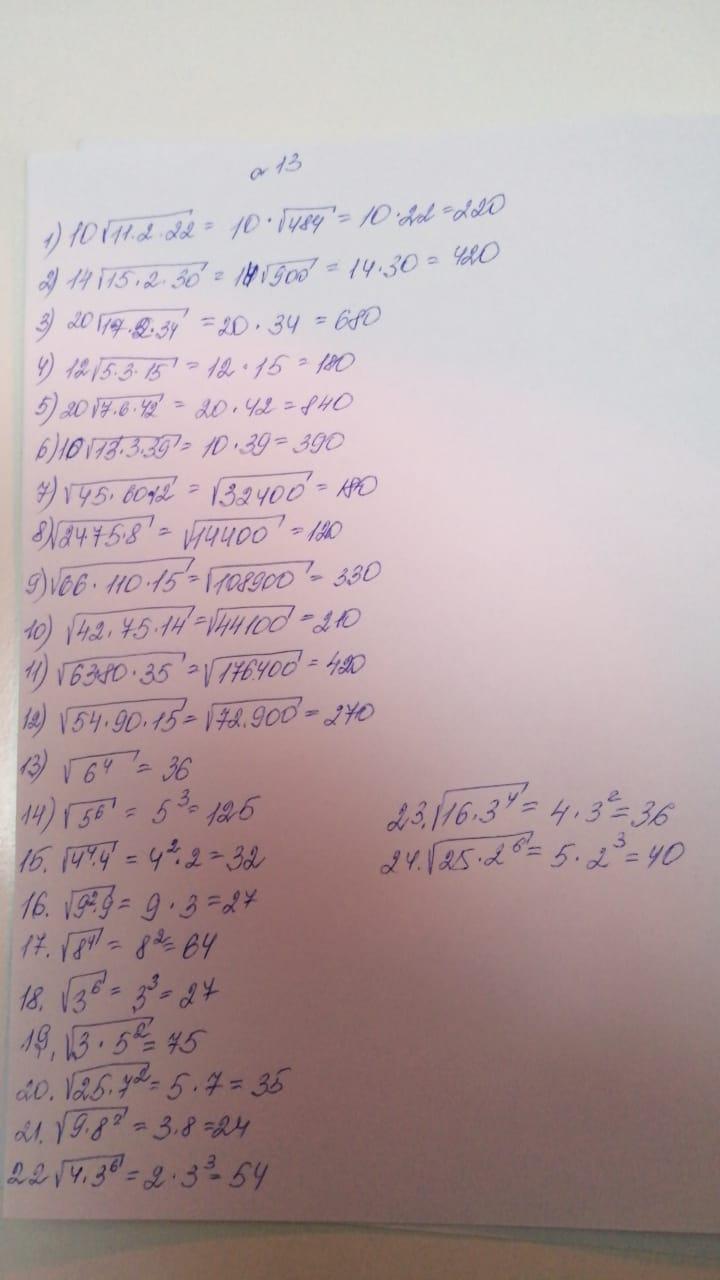 №13
1) 10√11·2·22 = 10·√484 = 10·22=220
2) 14√15·2·30 = 14√900 = 14·30 = 420
3) 20√17·2·34 = 20·34 = 680
4) 12√5·3·15 = 12·15 = 180
5) 20√7·6·42 = 20·42 = 840
6) 10√13·3·39 = 10·39 = 390
7) √45·60·12 = √32400 = 180
8) √24·75·8 = √14400 = 120
9) √66·110·15 = √108900 = 330
10) √42·75·14 = √44100 = 210
11) √63·80·35 = √176400 = 420
12) √54·90·15 = √72.900 = 270
13) √6⁴ = 36
14) √5⁶ = 5³ = 125
15. √4⁴·4 = 4²·2 = 32
16. √9²·9 = 9·3 = 27
17. √8⁴ = 8² = 64
18. √3⁶ = 3³ = 27
19. √3·5² = 75
20. √25·7² = 5·7 = 35
21. √9·8² = 3·8 = 24
22 √4·3⁶ = 2·3³ = 54
23. √16·3⁴ = 4·3² = 36
24. √25·2⁶ = 5·2³ = 40